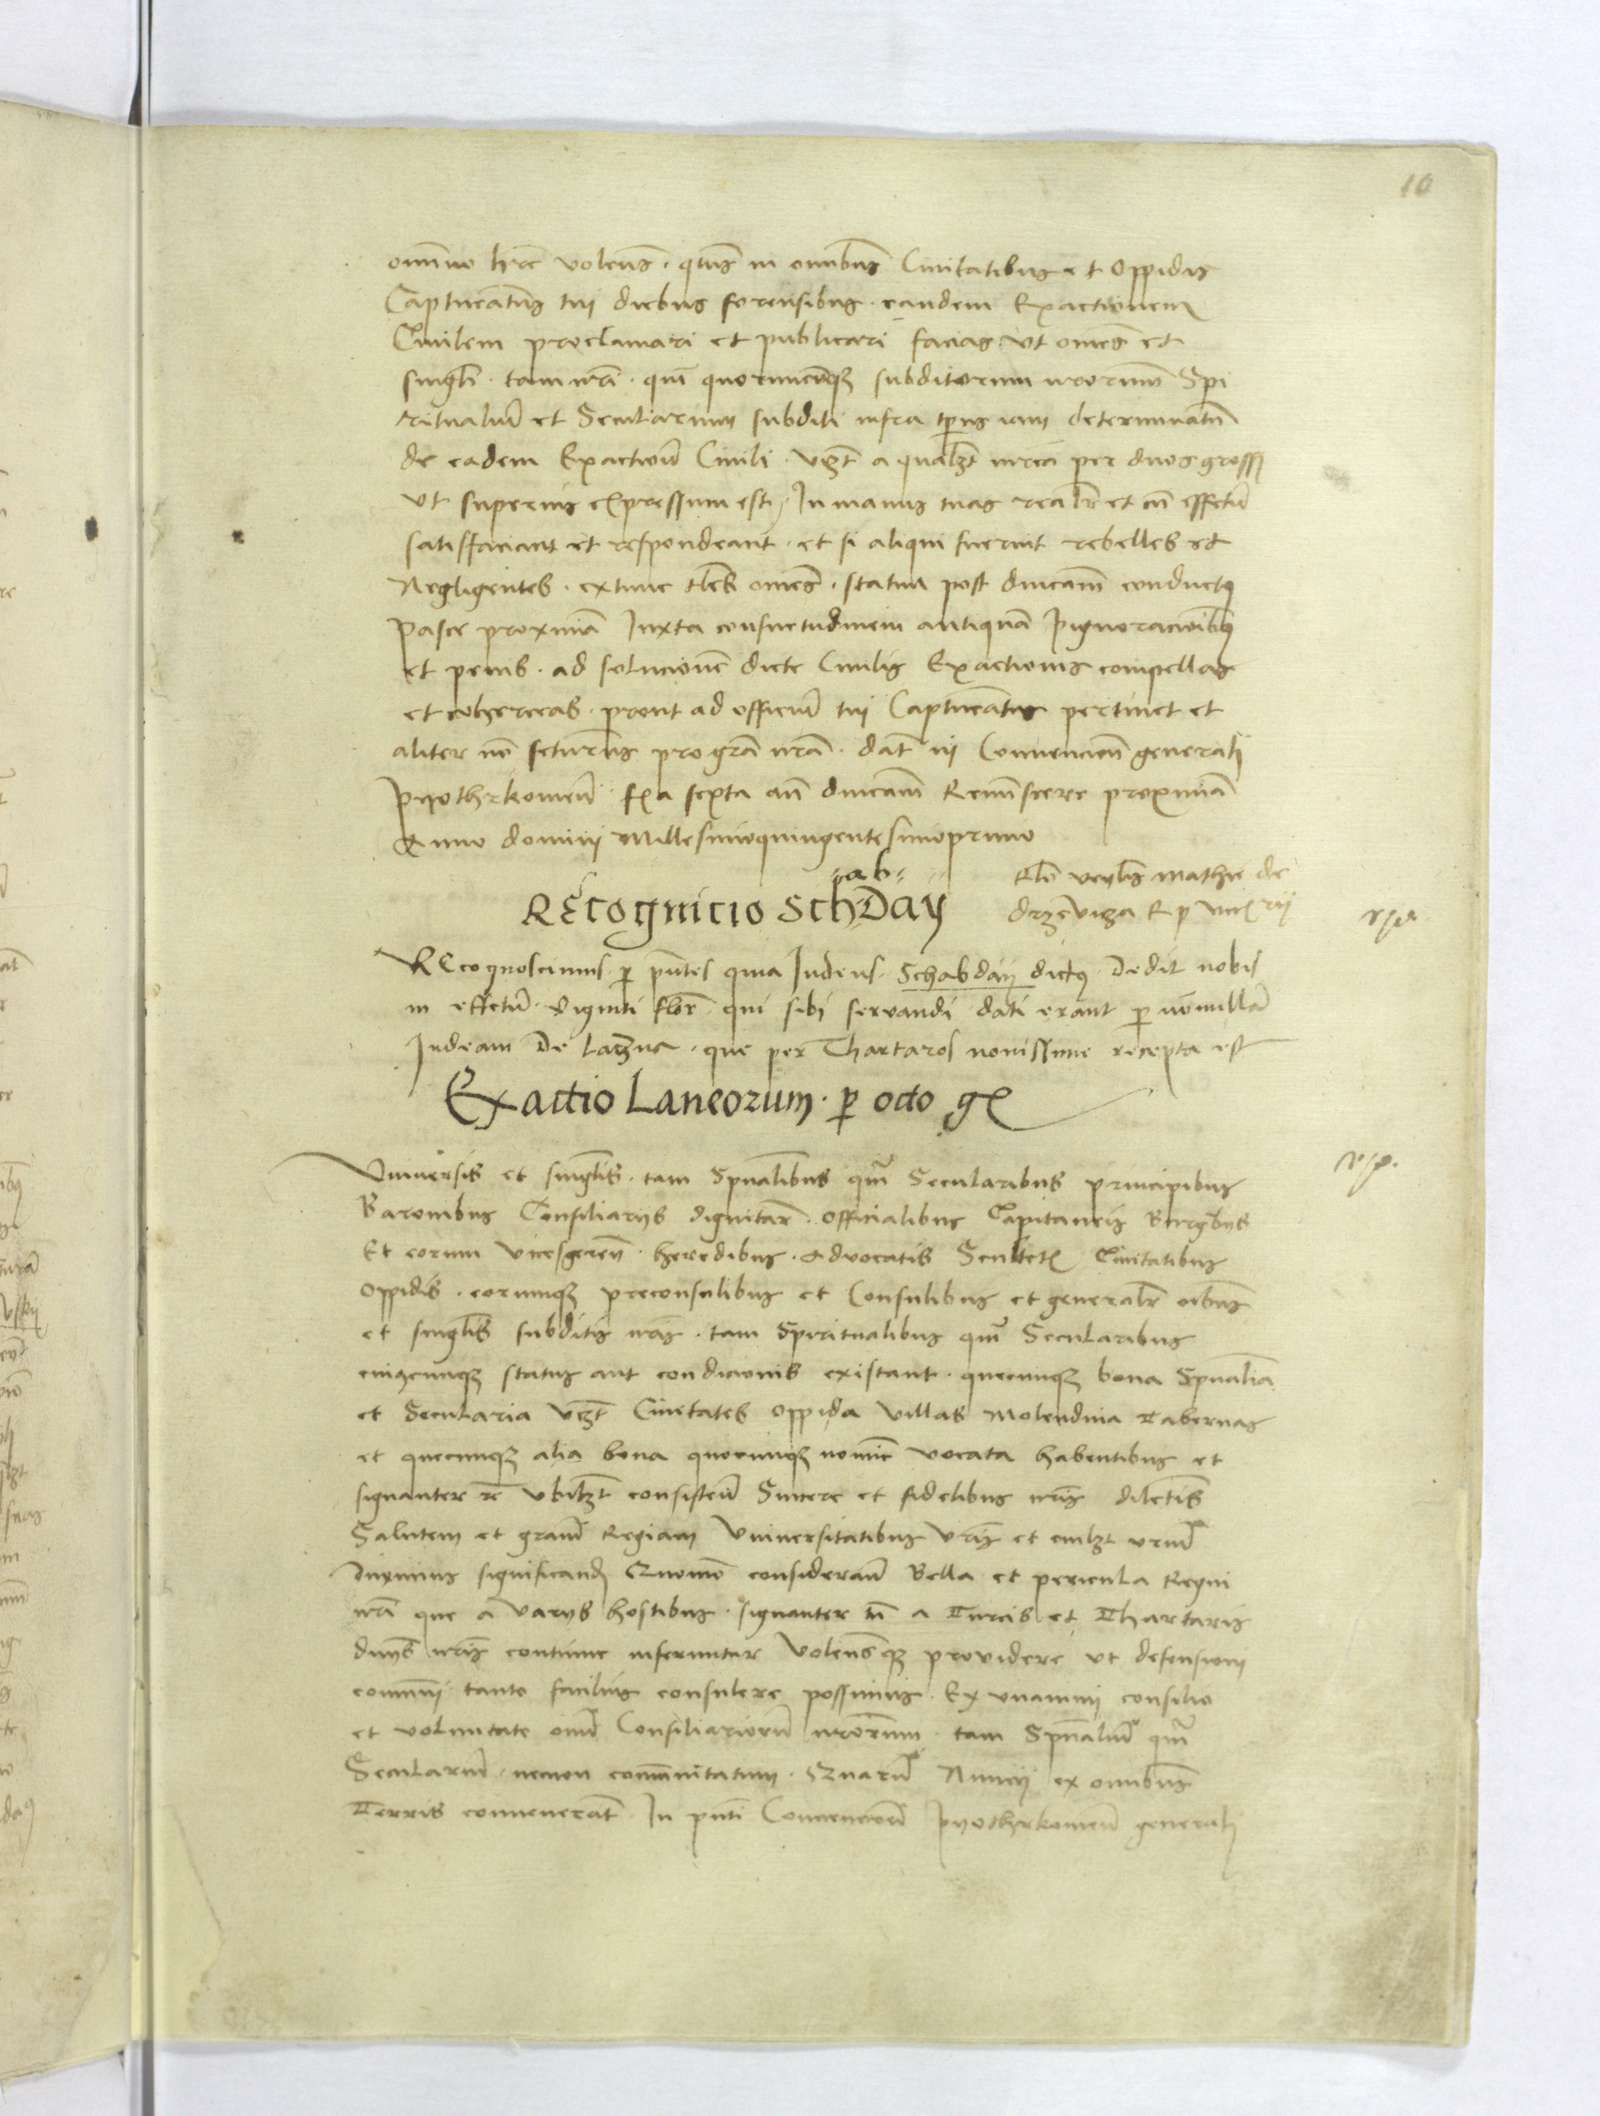 10
omnino hre volens. qtus in omibus Civitatibus et Oppidis
Captneatus tui diebus forensibus. eandem Exactionem
Civilem proclamari et publicari facias ut omes et
singli. tam nri. qm quorumcunqz subditorum nrorum Spi
ritualiu et Seculiarium subditi infra tpus iam determinatu
de eadem Exactione Civili. vzt a qualzt marca per duos grossos
ut superius expressum est, In manus tuas realr et cu effctu
satisfaciant et respondeant. et si aliqui fuerint rebelles et
Negligentes. extunc tles omes. statim post dnicam conductus
Pasce proxima Juxta consuetudinem antiqua Pignoracioibus
et penis. ad solucione dicte Civilis Exactionis compellas
et coherceas. prout ad officiu tui Captneatus pertinet et
aliter no facturus pro gra nra. dat in Convencione generali
Pyothrkowien fia sexta an dnicam Reminiscere proximam
Anno domini Millesimoquingentesimoprimo
Recognicio Sch ab Day
Rlo venlis Mathie de
drzewicza R p vicecancellarii
REcognoscimus. p pntes quia Judeus. Schabday dictus. Dedit nobis
in effctu. Viginti flor. qui sibi servandi dati erant p nonnullam
Judeam De . que per Thartaros novissime recepta est
Exactio Laneorum. p octo g
Universis et singlis. tam Spualibus qm Secularibus principibus
Baronibus Consiliarys dignitar. officialibus Capitaneis Burgbys
Et eorum Vicesgeren. heredibus. Advocatis Scultet Civitatibus
Oppidis. eorumqz preconsulibus et Consulibus et generalr oibus
et singlis subditis nris. tam Spiritualibus qm Secularibus
cuiuscunqz status aut condicionis existant. quecunqz bona Spualia
et Secularia vzt Civitates oppida villas Molendina Tabernas
et quecunqz alia bona quocunqz nomine vocata habentibus et
signanter re ubilzt consisten Sincere et fidelibus nris dilctis
Salutem et gram Regiam Universitatibus vris et cuilzt vrum
Duximus significand Quomo consideran Bella et pericula Regni
nri que a varys hostibus. signanter tn a Turcis et Thartaris
dnys nris continue inferuntur volensqz providere ut defensioni
commui tanto facilius consulere possimus. Ex unanimi consilio
et voluntate oim Consiliariorum nrorum. tam Spualium qm
Secularium. necnon communitatum. Quarum Nuncy ex omibus
Terris convenerat. In pnti Convencione Pyothrkowien generali